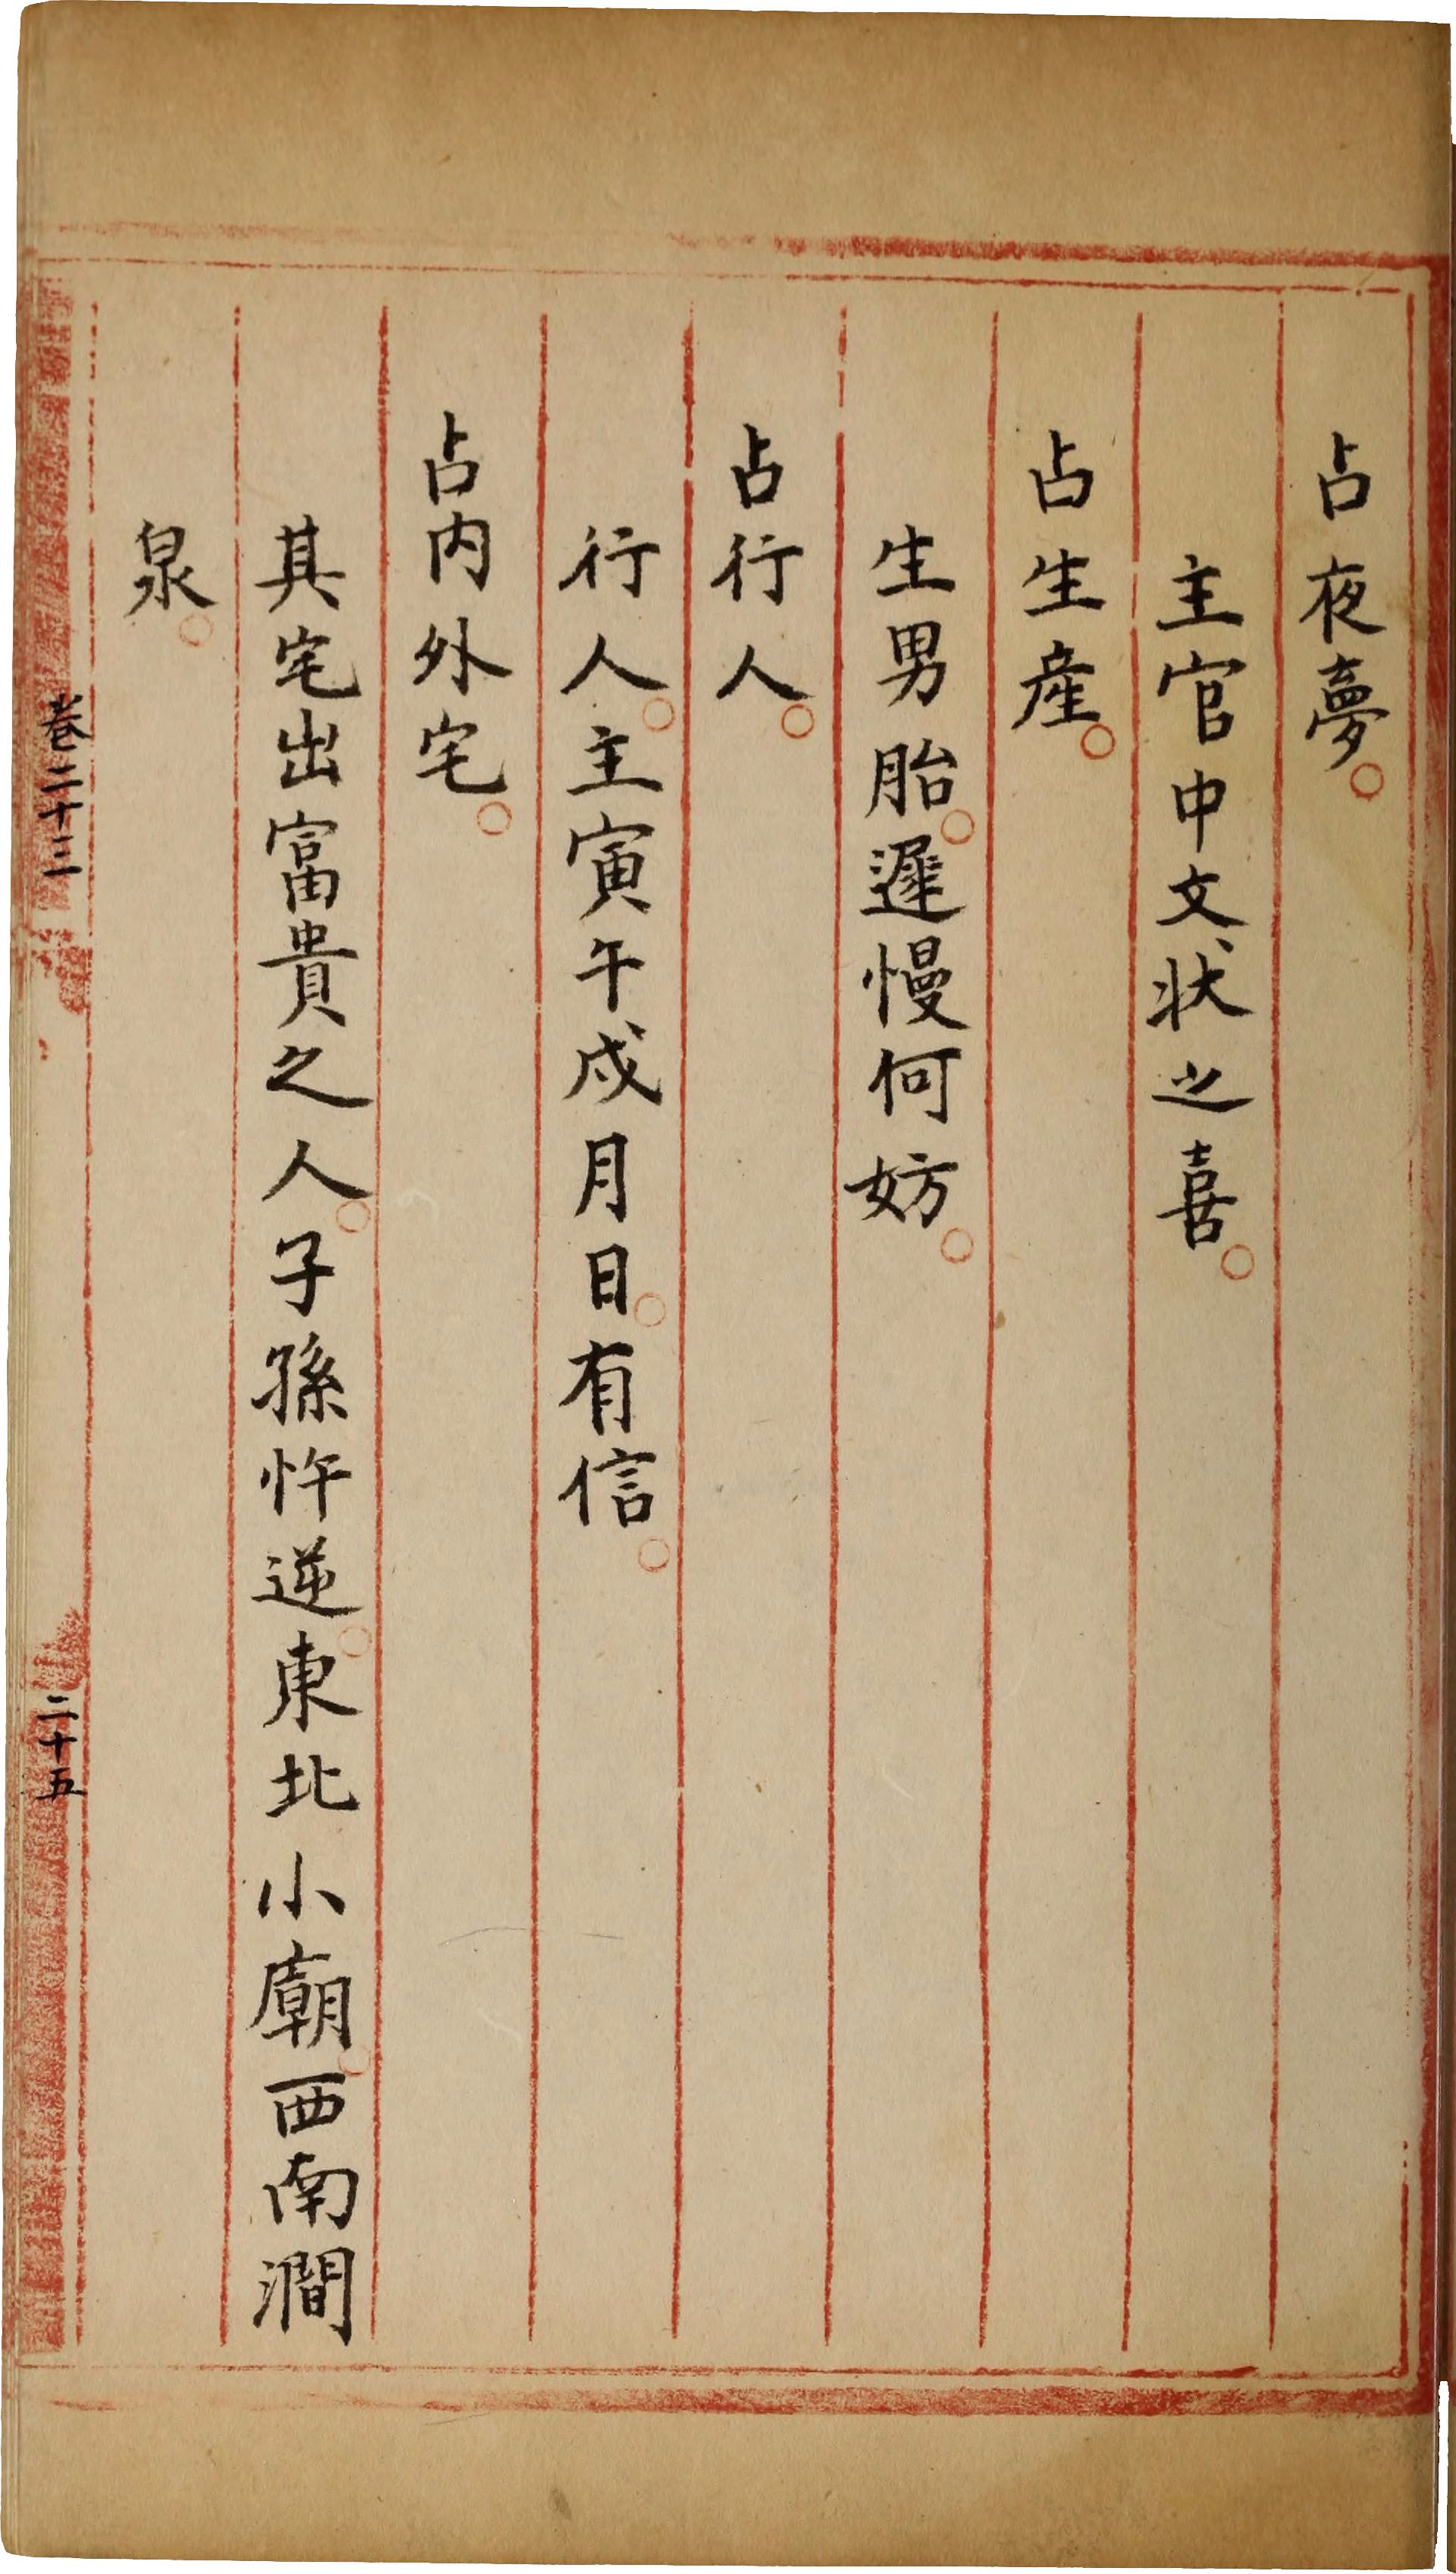 占夜夢。
主官中文狀之喜。
占生產。
生男胎。遲慢何妨。
占行人。
行人。主寅午戌月日。有信。
占內外宅。
其宅出富貴之人。子孫忤逆。東北小廟。西南澗
泉。
卷二十三
二十五